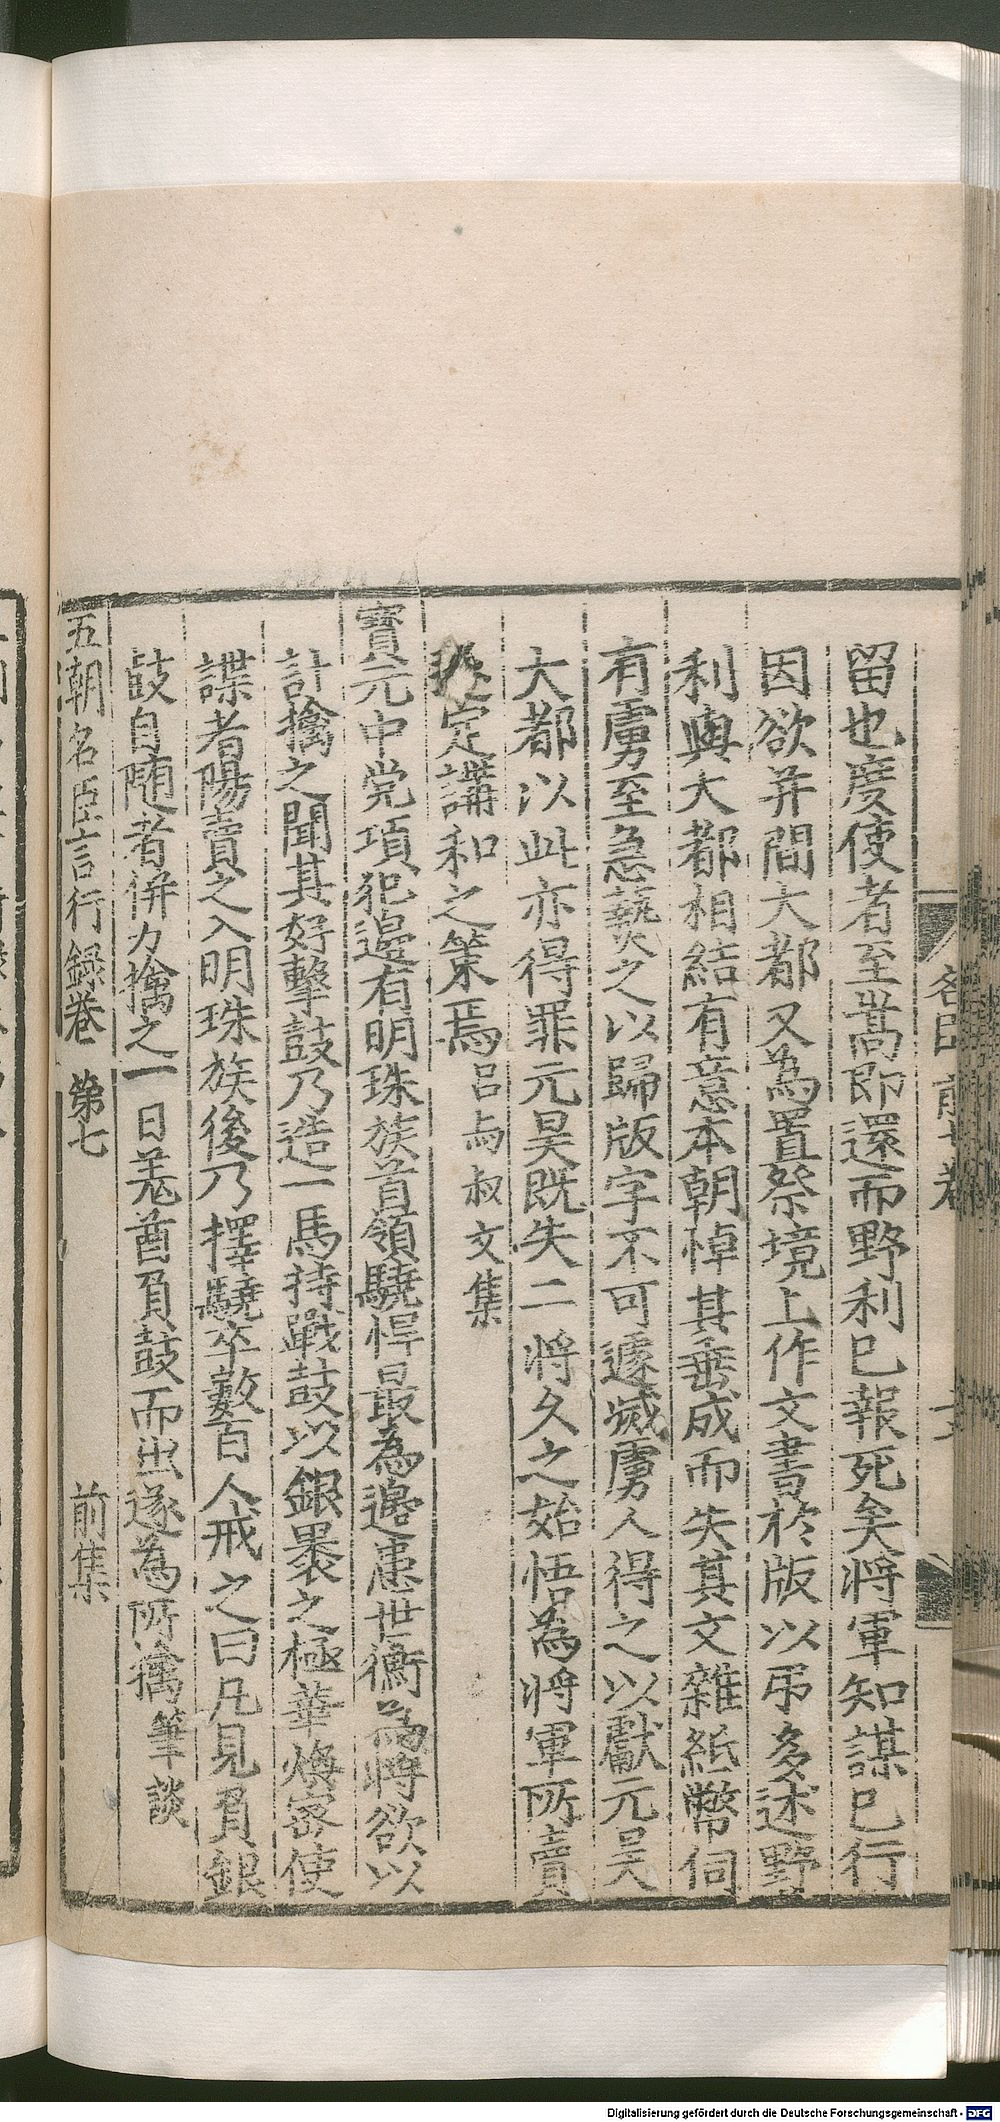 留也度使者至嵩即還而野利已報死矣将軍知謀已行
因欲并間大都又為置祭境上作文書於版以弔多述野
利與大都相結有意本朝悼其垂成而失其文雜紙幣伺
有虜至急爇之以歸版字不可遽滅虜人得之以獻元昊
大都以此亦得罪元昊既失二将久之始悟為将軍所賣
定講和之策焉 吕与叔文集
寶元中党項犯邉有明珠族首領驍悍最為邉患世衡為将欲以
計擒之聞其好擊鼓乃造一馬持戰鼓以銀裹之極華煥密使
諜者陽賣之入明珠族後乃擇驍卒數百人戒之曰凡見負銀
鼓自随者併力擒之一日羌酋負鼓而出遂為所擒 筆談
五朝名臣言行録卷第七 前集
名臣前七卷
Digitalisierung gefördert durch die Deutsche Forschungsgemeinschaft - DFG